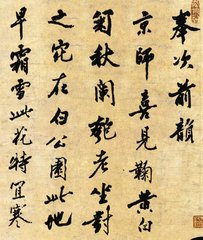 奉次前韻
京師喜見鞠黄
秋闌老坐對
之在伯公園此地
早霜雪此花特宜寒